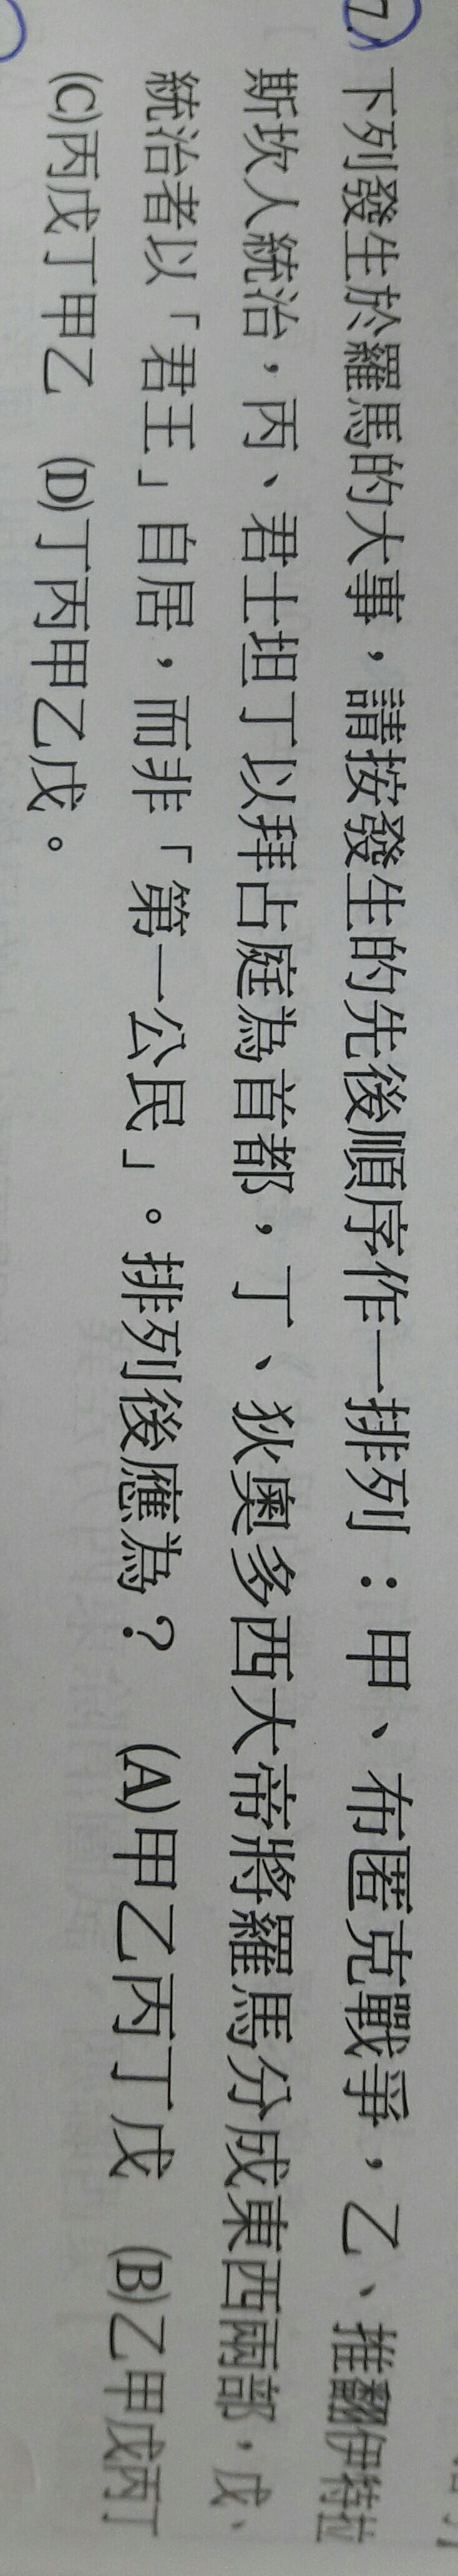 7.下列發生於羅馬的大事，請按發生的先後順序作一排列：甲、布匿克戰爭，乙、推翻伊特拉
斯坎人統治，丙、君士坦丁以拜占庭為首都，丁、狄奧多西大帝將羅馬分成東西兩部，戊、
統治者以「君王」自居，而非「第一公民」。排列後應為？ (A)甲乙丙丁戊 (B)乙甲戊丙丁
(C)丙戊丁甲乙 (D)丁丙甲乙戊。